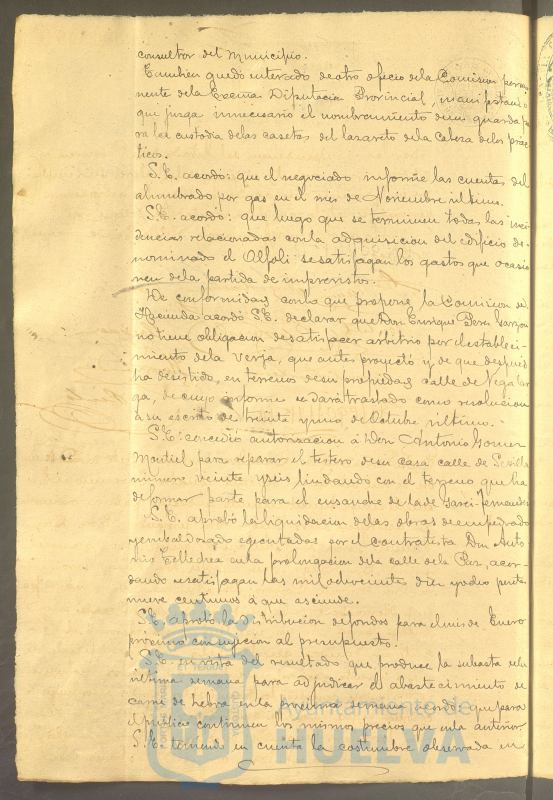 consultor del Municipio.
Tambien quedó enterado de otro oficio de la Comision perma
nente de la Excma Diputacion Provincial, manifestando
que juzga innecesario el nombramiento de un guarda pa
ra la custodia de las casetas del lazareto de la Cabeza de los prác
ticos.
S.E. acordó: que el negociado informe las cuentas del
alumbrado por gas en el mes de Noviembre ultimo.
S.E. acordó: que luego que se terminen todas las inci
dencias relacionadas con la adquisicion del edificio de
nominado el Alfolí: se satisfagan los gastos que ocasio
nen de la partida de imprevistos.
De conformidad con lo que propone la Comision de
Hacienda acordó S.E. declarar que Don Enrique Perez Garzon
no tiene obligacion de satisfacer arbitrio por el estableci
miento de la verja, que antes proyectó y de que despues
ha desistido, en terrenos de su propiedad calle de Vega lar
ga, de cuyo informe se dará traslado como resolucion
á su escrito de treinta y uno de Octubre ultimo.
S.E. concedio autorizacion á Don Antonio Gomez
Montiel para reparar el testero de su casa calle de Sevilla
numero veinte y seis lindando con el terreno que ha
de formar parte para el ensanche de la de Garci-Fernandez
S.E. aprobó la liquidacion de las obras de empedrado
y embaldosado egecutadas por el contratista Don Anto
nio en la prolongacion de la calle de la Paz, acor
dando se satisfagan las mil ochocientas diez y ocho pesetas
nueve centimos á que asciende.
S.E. aprobó la distribucion de fondos para el mes de Enero
proximo con sujecion al presupuesto.
S.E. en vista del resultado que produce la subasta de la
última semana para adjudicar el abastecimiento de
carne de hebra en la proxima semana acordó que para
el público continuen los mismos precios que en la anterior.
S.E. teniendo en cuenta la costumbre observada en
Ayuntamiento de
HUELVA